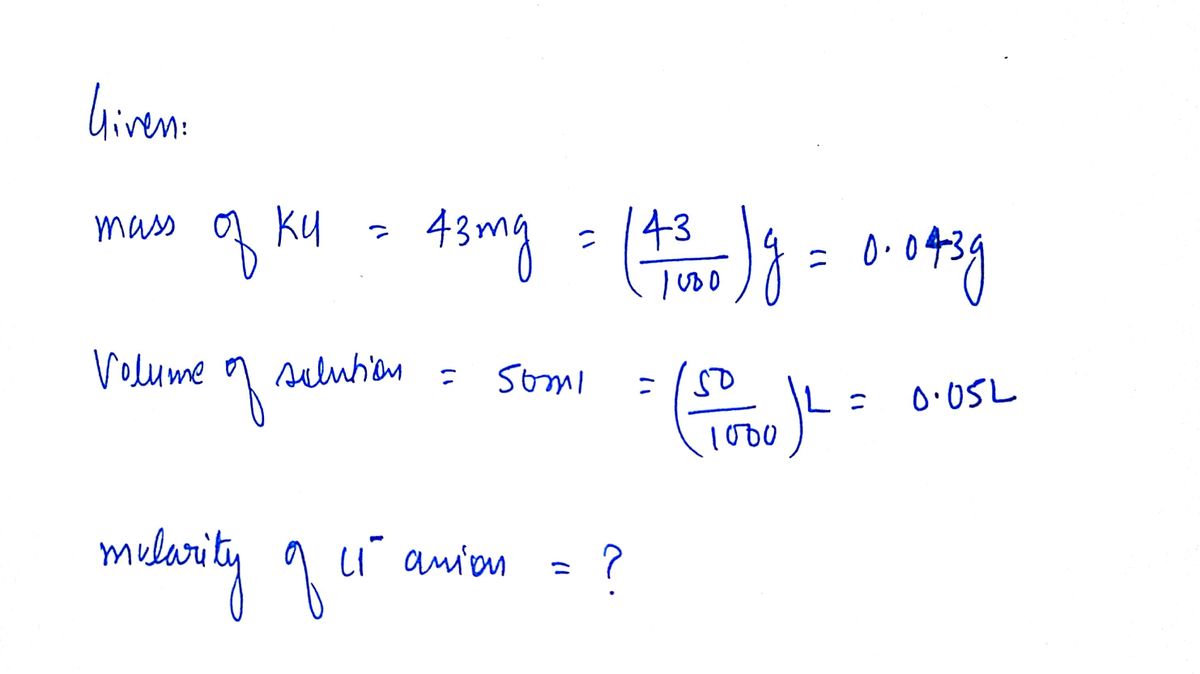 Given:
mass of KCl = 43mg = (43/1000)g = 0.043g
Volume of solution = 50ml = (50/1000)L = 0.05L
molarity of Cl⁻ anion = ?